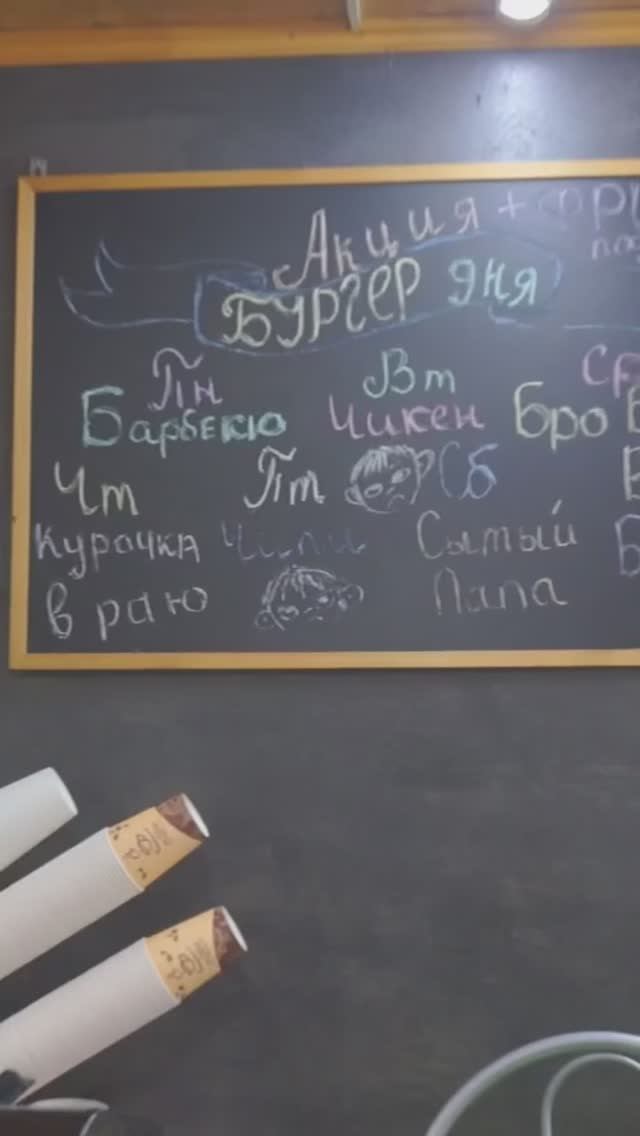 Акция +
БУРГЕР дня
Пн Вт
Барбекю Чикен Бро
Чт Пт Сб
Курочка Чили Сытый
в раю Папа